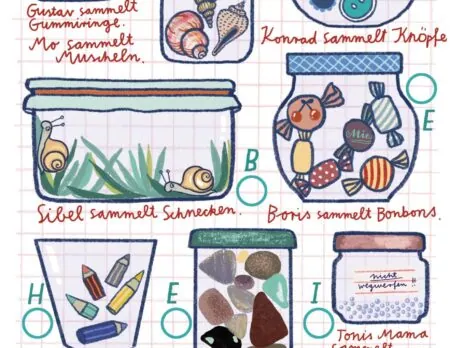 Gustav sammelt
Gummiringe.
Mo sammelt
Muscheln.
Konrad sammelt Knöpfe
E
Mie
B
Sibel sammelt Schnecken.
Boris sammelt Bonbons.
H
E
I
nicht
wegwerfen!!
Tonis Mama
sammelt